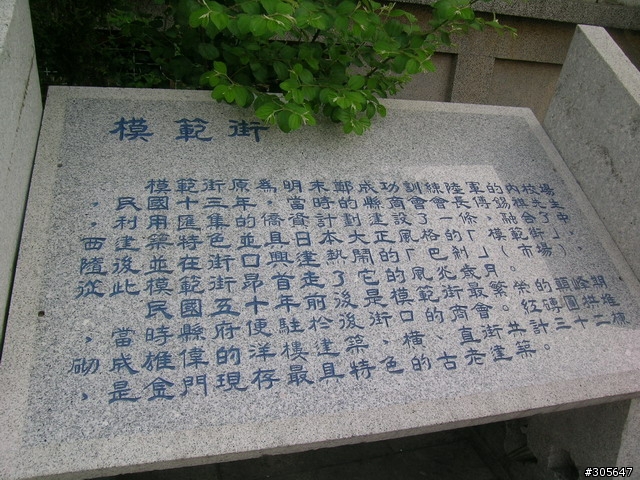 模範街
模範街原為明末鄭成功訓練陸軍的內校場
，民國十三年，當時的縣商會會長傅錫祺先生
利用匯集的僑資計劃建設了一條融合了「中
、西
建築特色並且日本大正風格的「模範街」（市場）。
隨後並在街口興建熱
的「巴剎」
從此模範街昂首走了它
歲月。
民國五十年前後是模範街最繁榮的顛峰期
，當時縣府便駐於後
街
商會
紅磚圓拱
砌成雄偉的洋樓建築，
直街共計三十二棟
，是金門現存最具特色的古老建築。
#305647